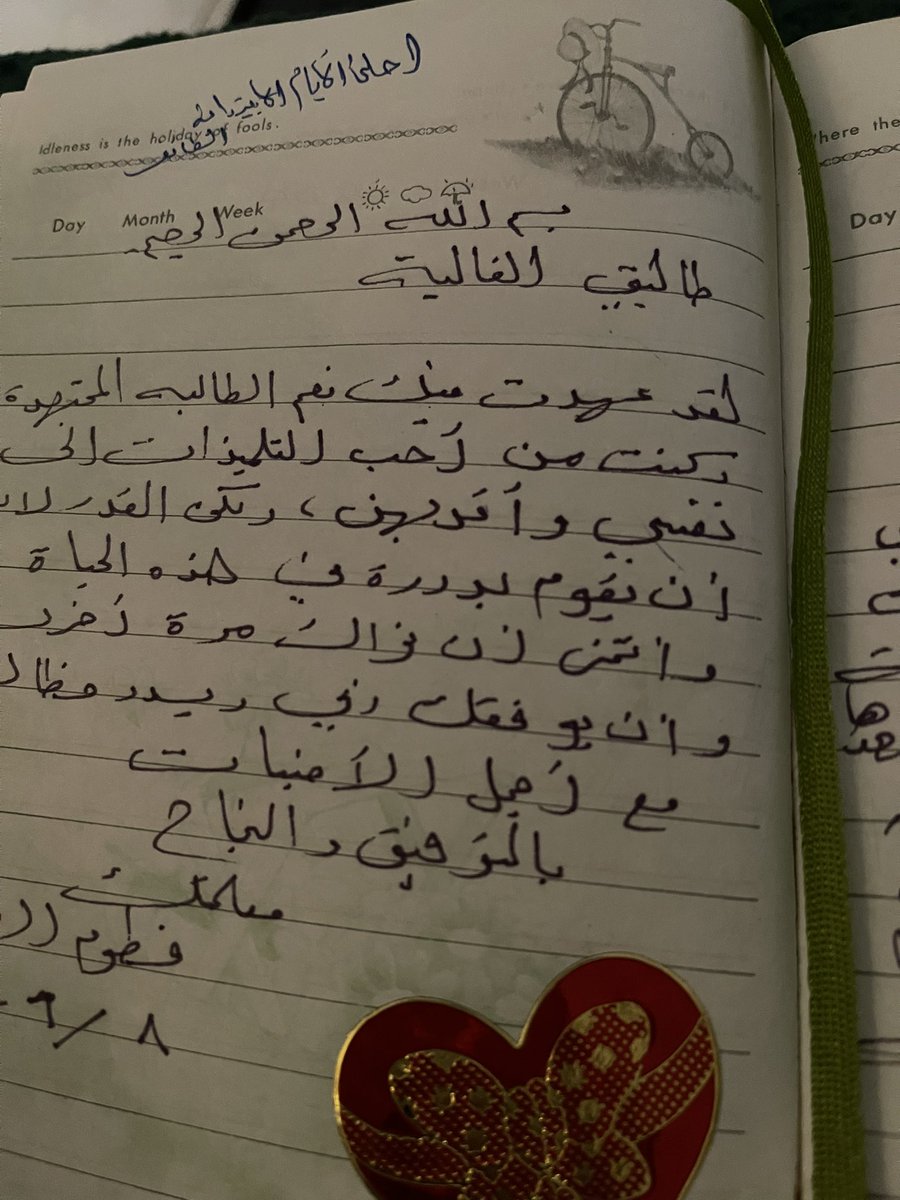 احلى الأيام الابتدائية
Idleness is the holiday of fools.
Day Month Week
بسم الله الرحمن الرحيم
طالبتي الغالية
لقد عهدت منك نعم الطالبه المجتهدة
وكنت من أحب التلميذات إلى
نفسي وأقربهن، ولكن القدر لابد
أن يقوم بدوره في هذه الحياة
وأتمنى أن نراك مرة أخرى
وأن يوفقك ربي ويسدد خطاك
مع أجمل الأمنيات
بالتوفيق والنجاح
معلمتك
فطوم
٨ / ٦
here the
Day